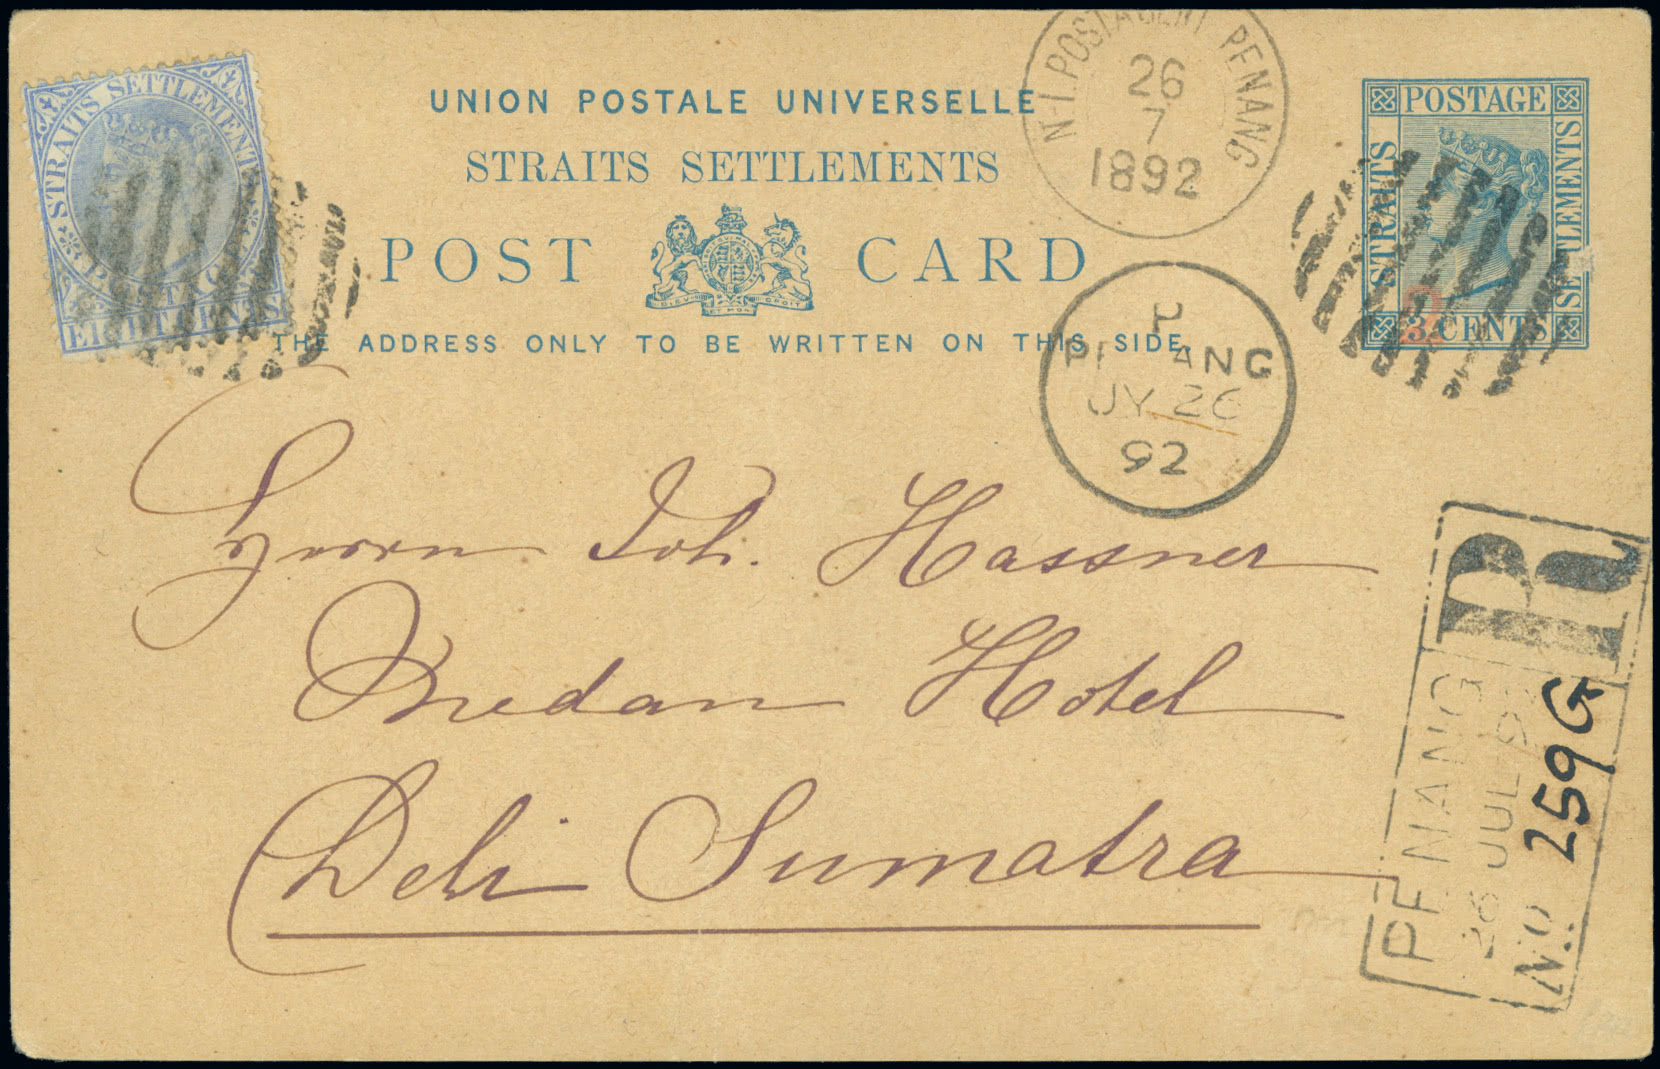 STRAITS SETTLEMENTS
EIGHT CENTS
UNION POSTALE UNIVERSELLE
STRAITS SETTLEMENTS
POST CARD
DIEU ET MON DROIT
THE ADDRESS ONLY TO BE WRITTEN ON THIS SIDE
N.-I. POSTAGENT PENANG
26
7
1892
POSTAGE
STRAITS
SETTLEMENTS
3 CENTS
P
PENANG
JY 26
92
Herrn Joh. Hassner
Medan Hotel
Deli Sumatra
R
PENANG
26 JUL 92
No. 259G